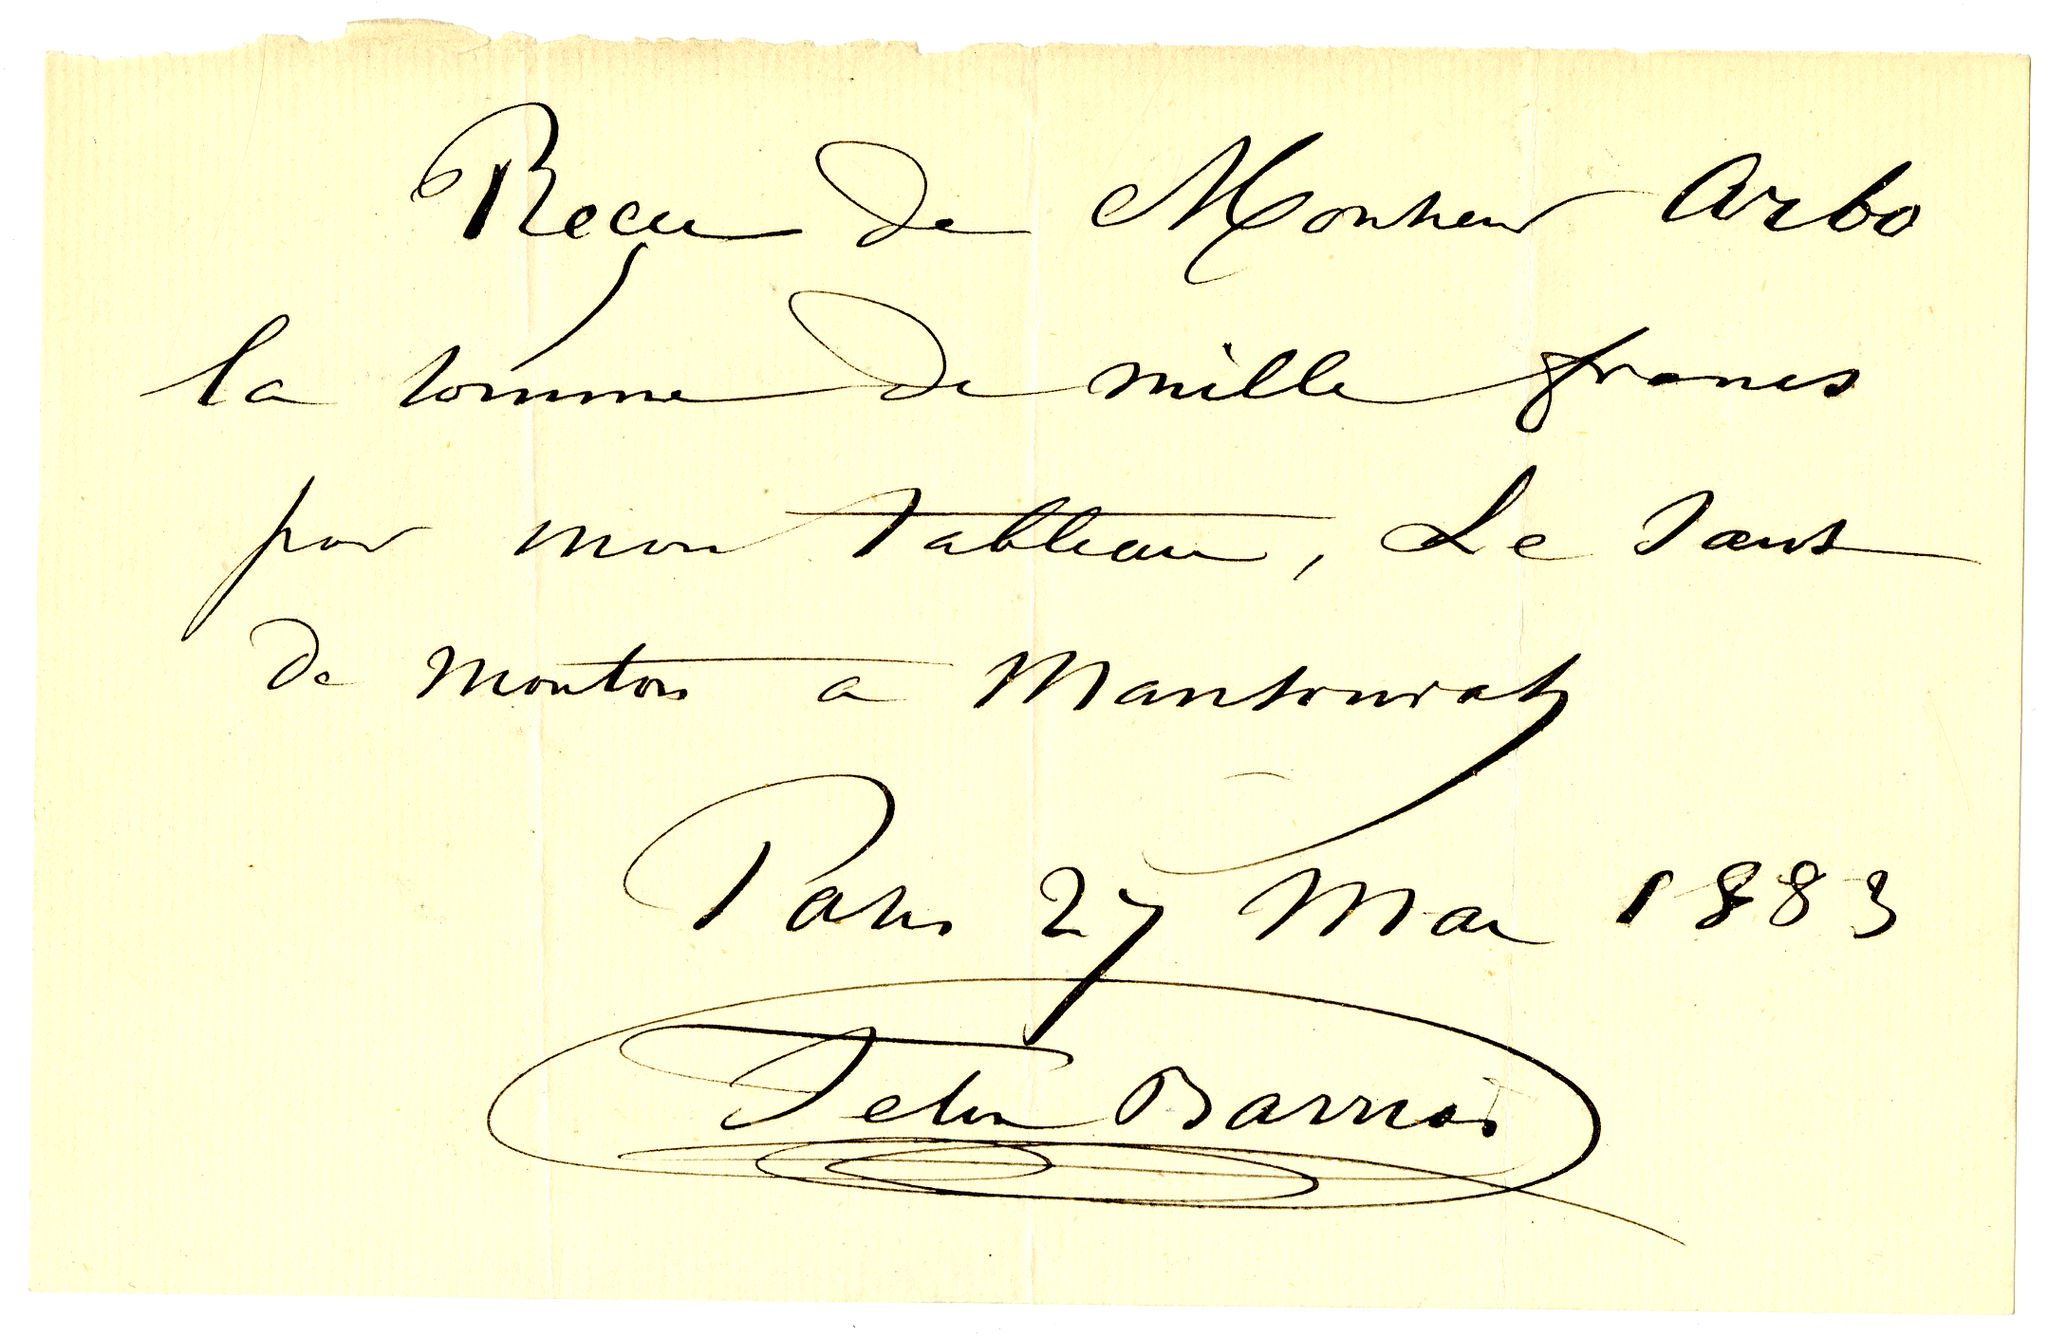 Reçu de Monsieur Arbo
la somme de mille francs
pour mon tableau, Le Saut
de mouton a Mansourah
Paris 27 Mai 1883
Felix Barrias